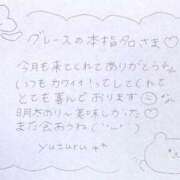 グレースの本指名さま♡
今月も来てくれてありがとうっ
いつもカワイイってしてくれて
とても喜んでおります
明太あり〜美味しかった♡
また会おうね(´･ω･`)
yuzuru